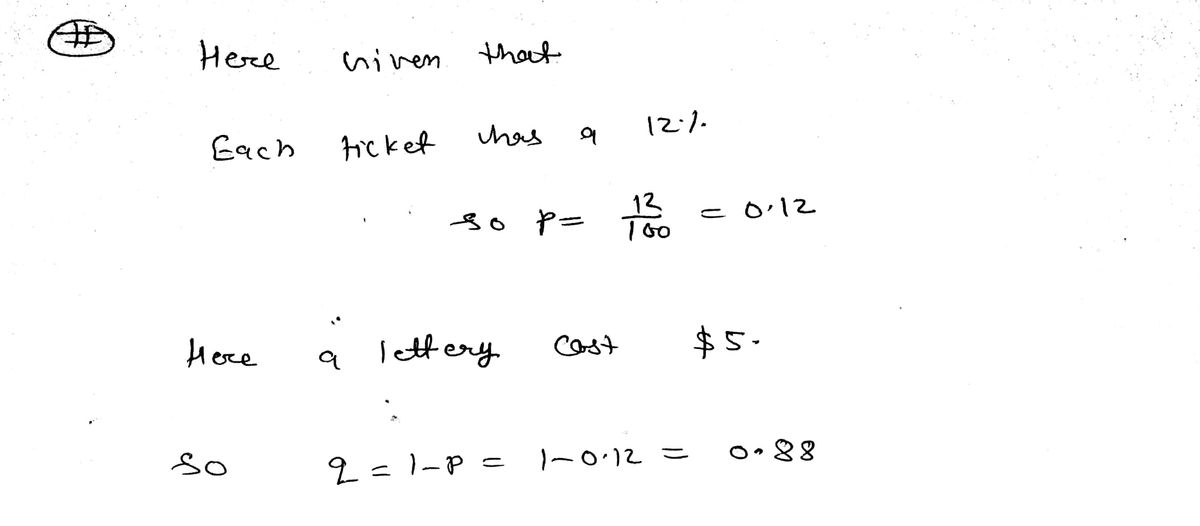 # Here Given that
Each ticket has a 12%
so p = 12/100 = 0.12
Here a lettery cost $5.
so q = 1-P = 1-0.12 = 0.88